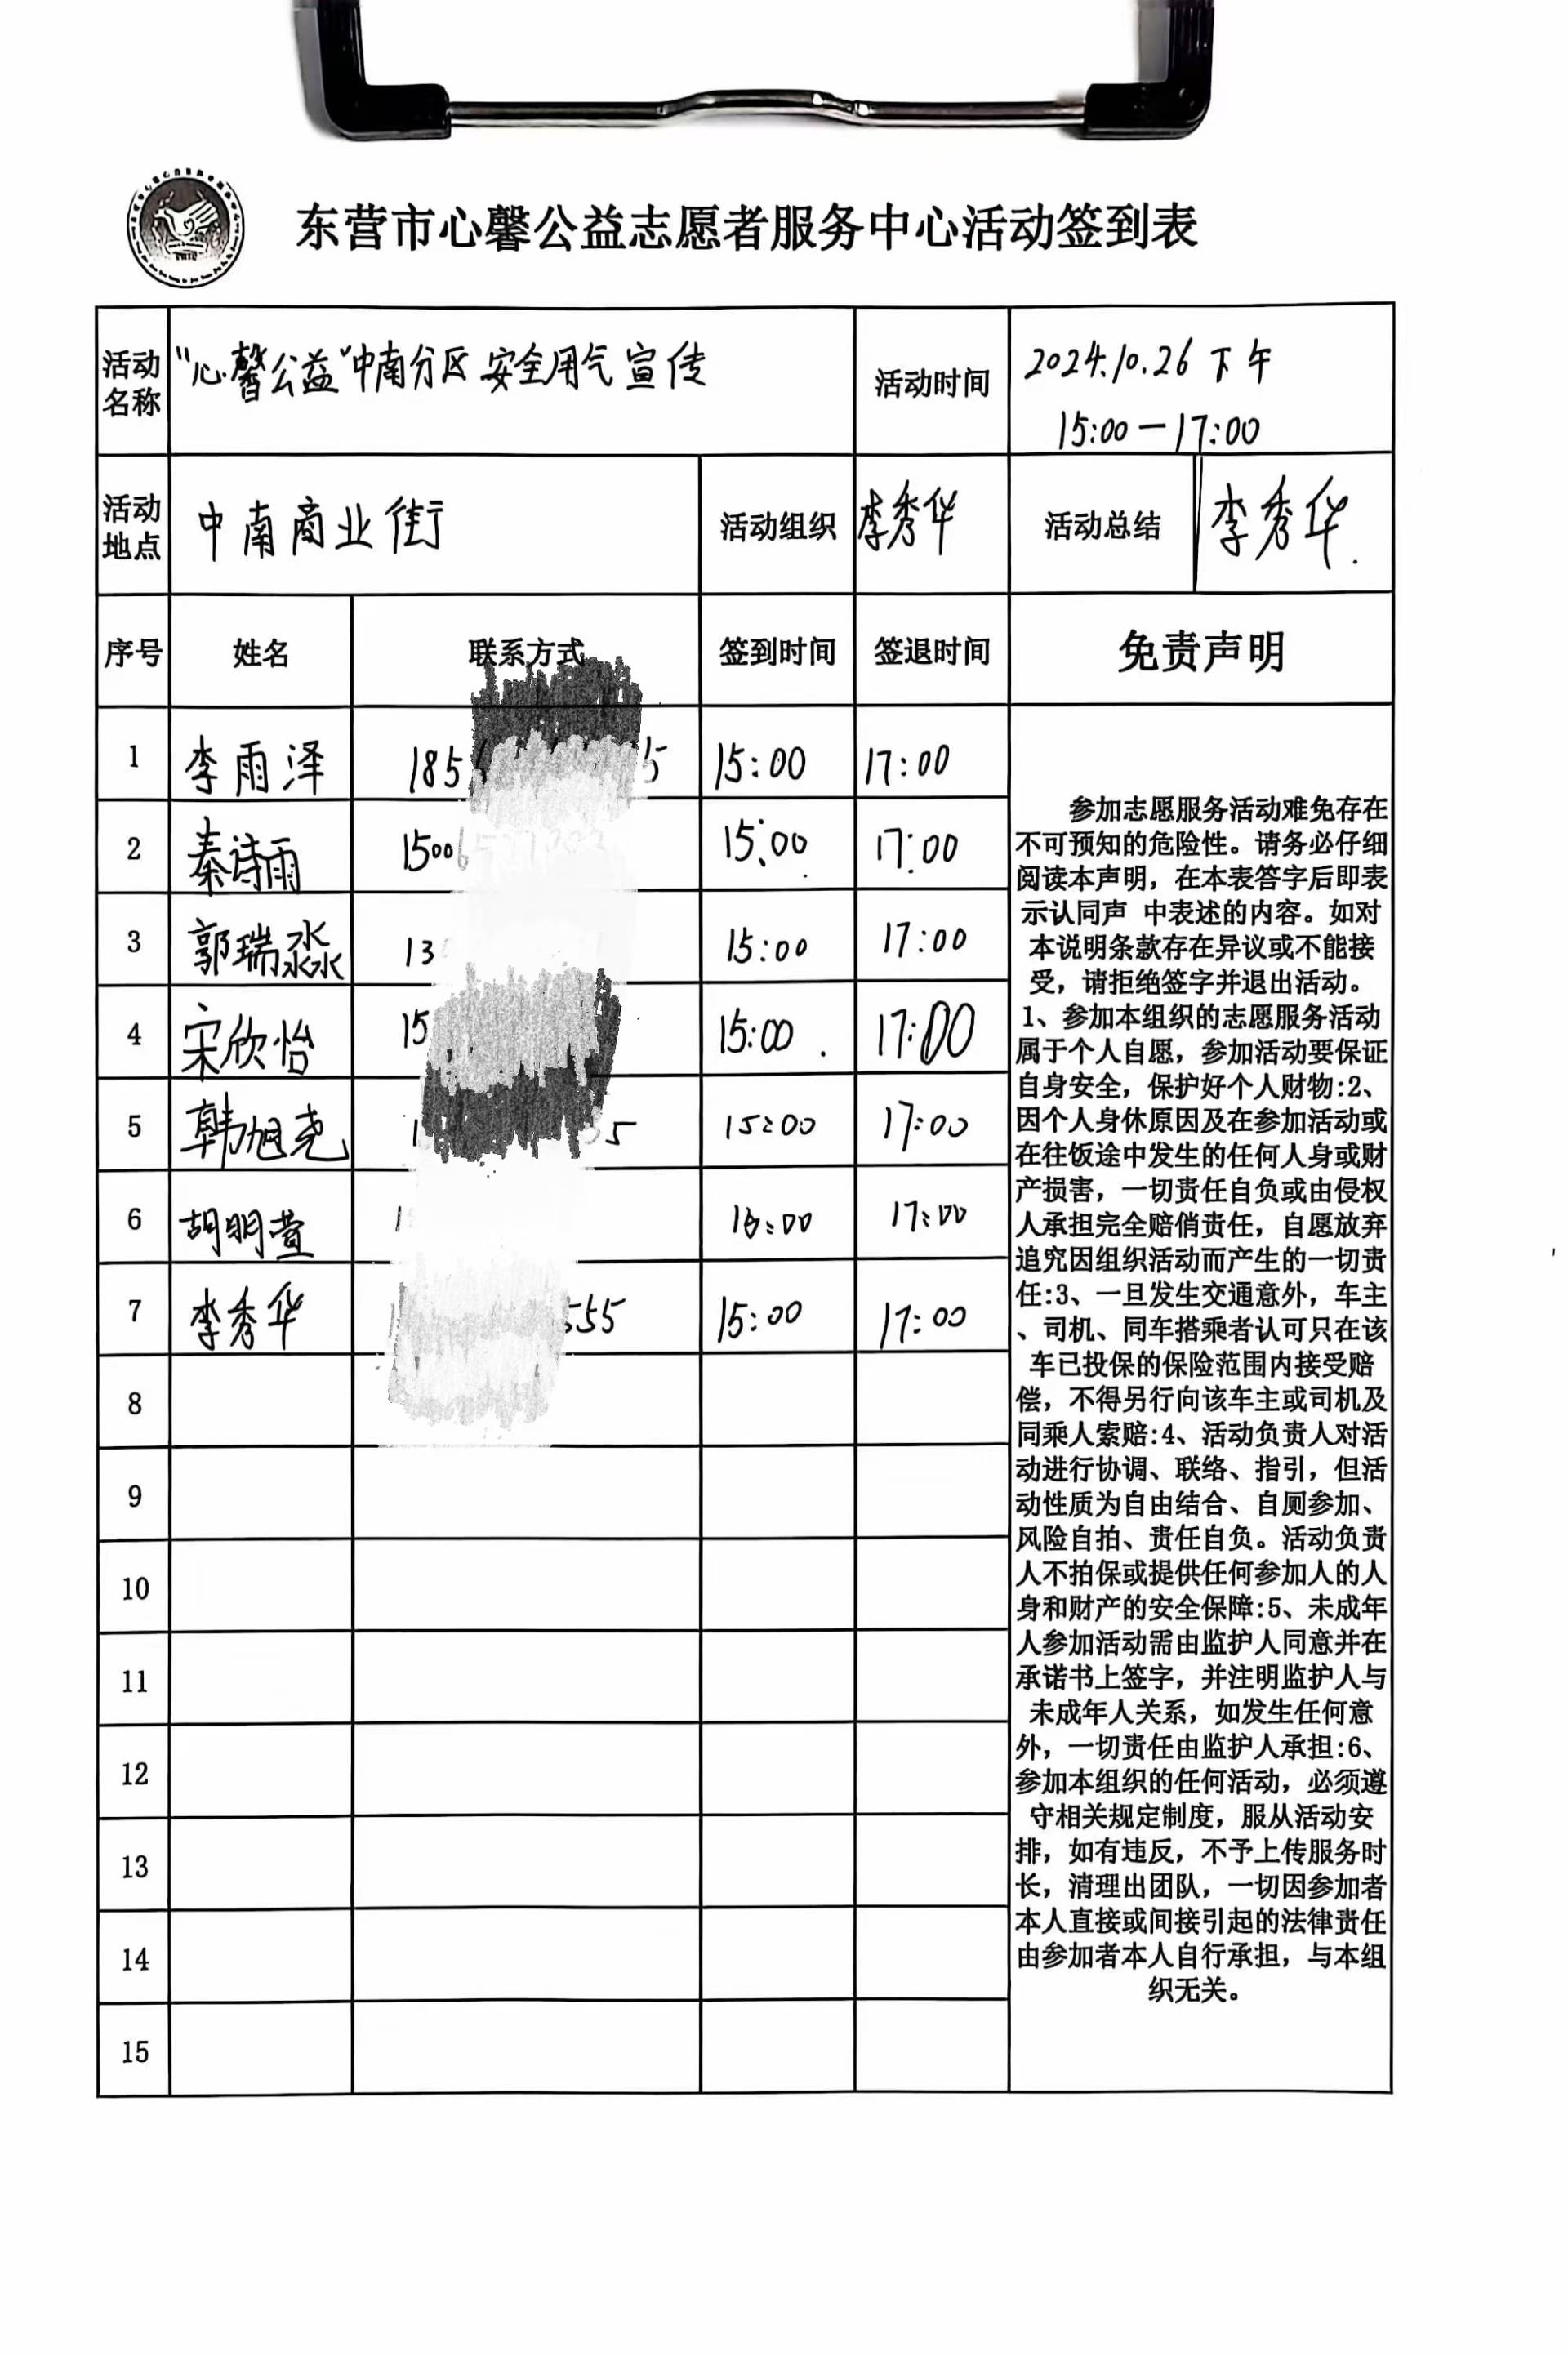 东营市心馨公益志愿者服务中心活动签到表
活动名称 "心馨公益"中南分区安全用气宣传 活动时间 2024.10.26下午
15:00-17:00
活动地点 中南商业街 活动组织 李秀华 活动总结 李秀华.
序号 姓名 联系方式 签到时间 签退时间 免责声明
1 李雨泽 185 5 15:00 17:00
2 秦诗雨 1500 15:00 17:00
3 郭瑞淼 13 15:00 17:00
4 宋欣怡 15 15:00 17:00
5 韩旭尧 1 5 15:00 17:00
6 胡明萱 1 16:00 17:00
7 李秀华 1 555 15:00 17:00
8
9
10
11
12
13
14
15
参加志愿服务活动难免存在
不可预知的危险性。请务必仔细
阅读本声明，在本表答字后即表
示认同声 中表述的内容。如对
本说明条款存在异议或不能接
受，请拒绝签字并退出活动。
1、参加本组织的志愿服务活动
属于个人自愿，参加活动要保证
自身安全，保护好个人财物:2、
因个人身休原因及在参加活动或
在往饭途中发生的任何人身或财
产损害，一切责任自负或由侵权
人承担完全赔偿责任，自愿放弃
追究因组织活动而产生的一切责
任:3、一旦发生交通意外，车主
、司机、同车搭乘者认可只在该
车已投保的保险范围内接受赔
偿，不得另行向该车主或司机及
同乘人索赔:4、活动负责人对活
动进行协调、联络、指引，但活
动性质为自由结合、自厕参加、
风险自拍、责任自负。活动负责
人不拍保或提供任何参加人的人
身和财产的安全保障:5、未成年
人参加活动需由监护人同意并在
承诺书上签字，并注明监护人与
未成年人关系，如发生任何意
外，一切责任由监护人承担:6、
参加本组织的任何活动，必须遵
守相关规定制度，服从活动安
排，如有违反，不予上传服务时
长，清理出团队，一切因参加者
本人直接或间接引起的法律责任
由参加者本人自行承担，与本组
织无关。